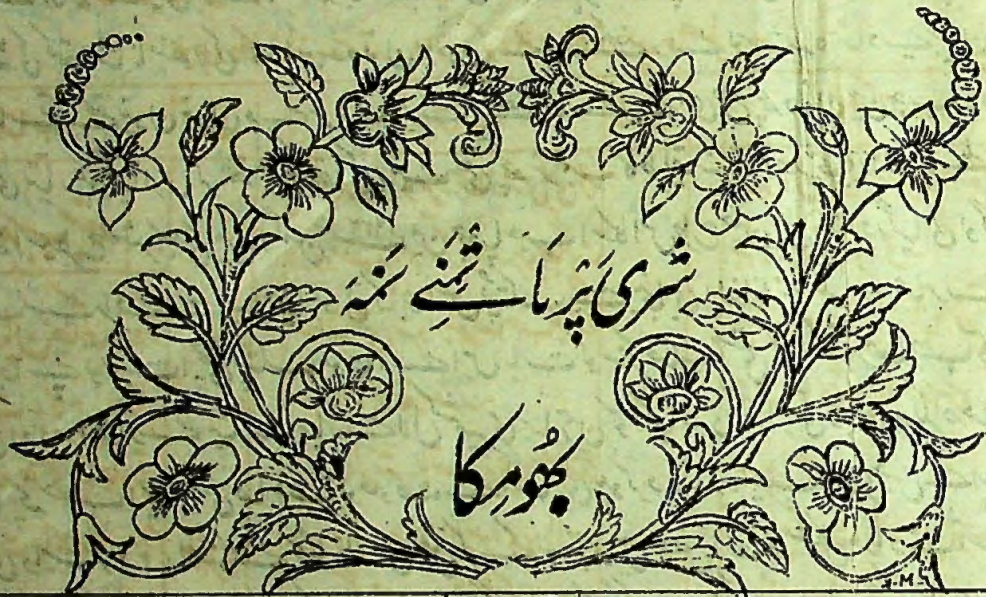 شری پَرماتمنے نَمہَ
بھُومِکا
J.M.